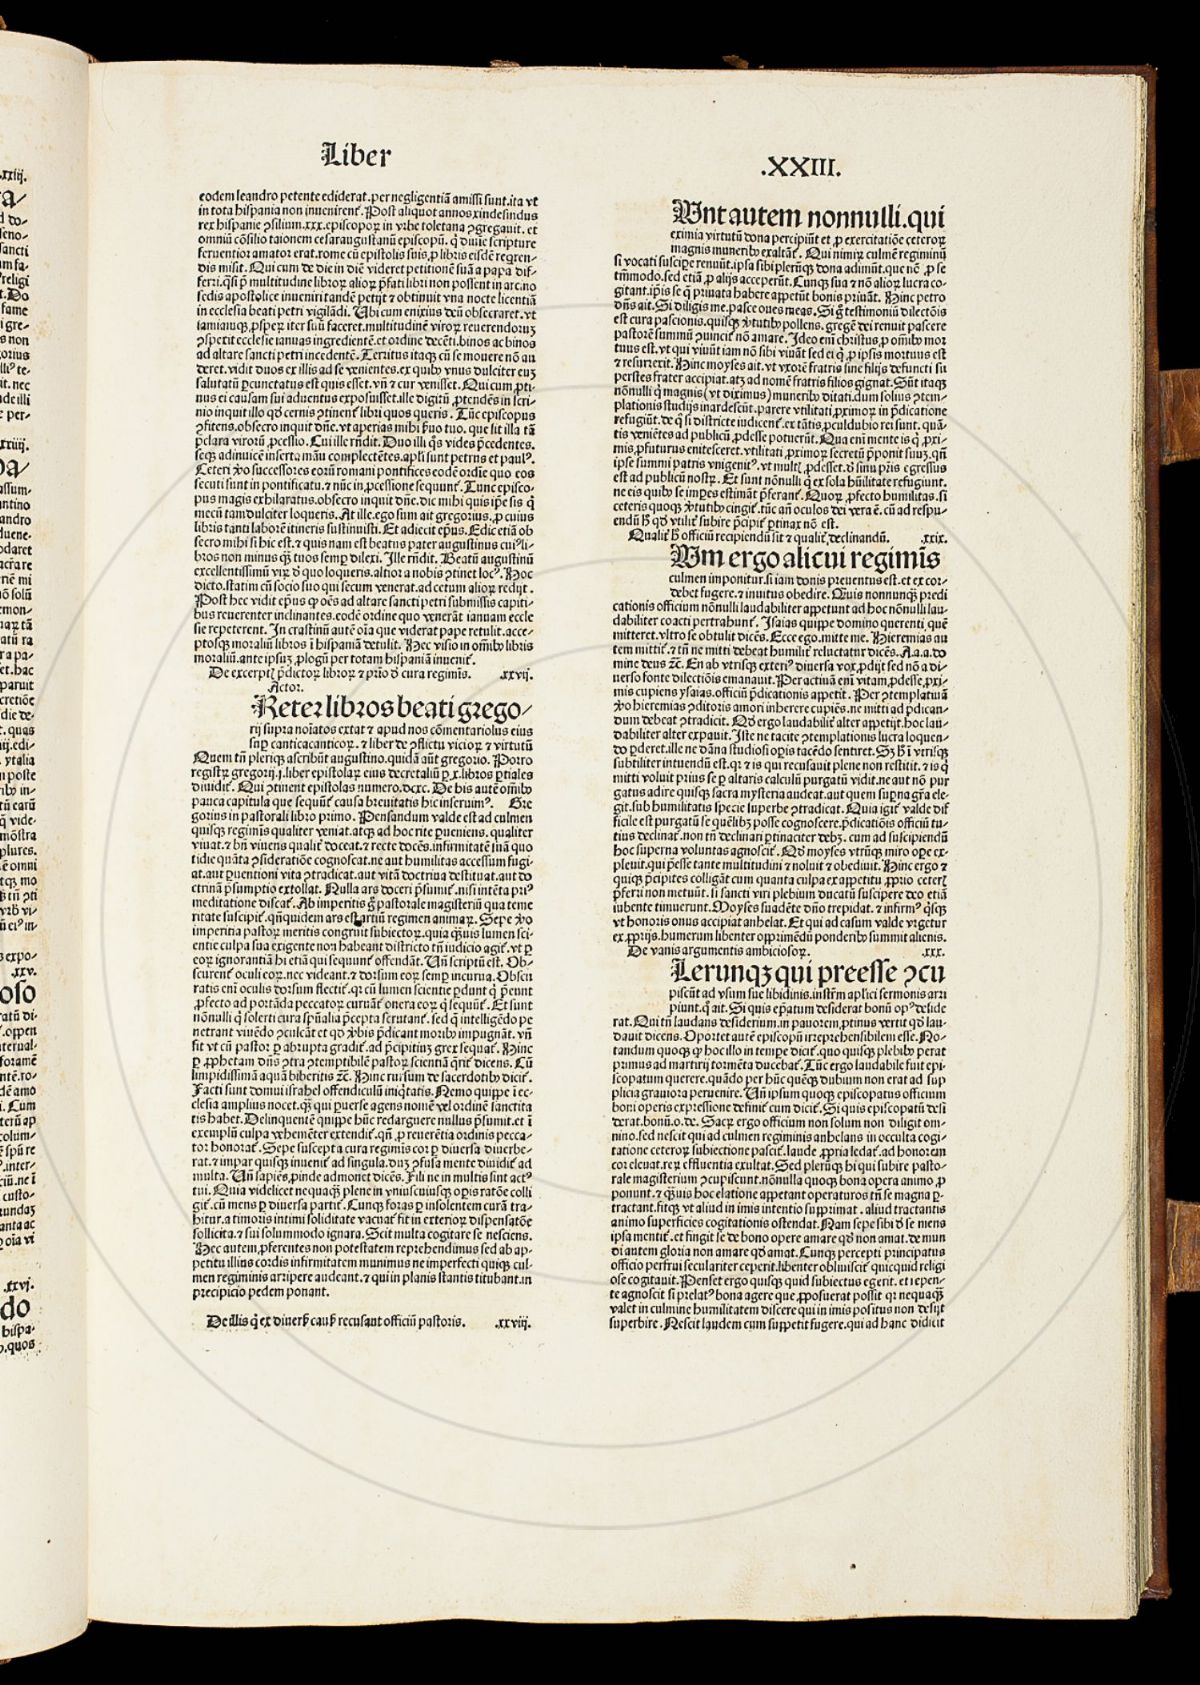 Liber
.XXIII.
eodem leandro petente ediderat.per negligentiā amissi sunt.ita vt
in tota hispania non invenirent᷑. Post aliquot annos xindesindus
rex hispanie ꝯsilium.xxx.episcoporꝝ in vrbe toletana ꝯgregauit. et
omniū cōsilio taionem cesaraugustanū episcopū. q̄ diuie scripture
feruentior amator erat.rome cū epistolis suis,ꝓ libris eisdē reqren-
dis misit. Qui cum de die in diē videret petitionē suā a papa dif-
ferri.qsi p̄ multitudine libroꝝ alioꝝ p̄fati libri non possent in arc.no
sedis apostolice inveniri tandē petijt ⁊ obtinuit vna nocte licentiā
in ecclesia beati petri vigilādi. Vbi cum enixius deū obsecraret.vt
salutatū ꝑcunctatus est quis esset.vn̄ ⁊ cur venisset. Qui cum ꝓti-
nus ei causam sui aduentus exposuisset.ille digitū ꝓtendēs in scri-
nio inquit illo qd cernis ꝯtinent᷑ libri quos queris. Tūc episcopus
ꝯfitens.obsecro inquit dn̄e.vt aperias mihi p̄uo tuo. que sit illa tā
p̄clara viroꝝ ꝓcessio. Cui ille rn̄dit. Duo illi q̄s vides p̄cedentes.
seqꝫ adinuicē inserta manu complectētes.apl̄i sunt petrus et paul⁹.
Ceteri ꝟo successores eorū romani pontifices eodē ordīe quo eos
secuti sunt in pontificatu.⁊ nūc in ꝓcessione sequunt᷑. Tunc episco-
pus magis exhilaratus.obsecro inquit dn̄e.dic mihi quis ip̄e sis q̄
mecū tam dulciter loqueris. At ille.ego sum ait gregorius.ꝓ cuius
libris tanti laborē itineris sustinuisti. Et adiecit ep̄us. Edic etiā ob
secro mihi si hic est.⁊ quis nam est beatus pater augustinus cui⁹ li-
bros non minus qꝫ tuos semꝑ dilexi. Ille rn̄dit. Beatū augustinū
excellentissimū virꝝ d̄ quo loqueris.altior a nobis ꝯtinet loc⁹. Hoc
dicto.statim cū socio suo qui secum venerat.ad cetum alioꝝ redijt.
Post hec vidit ep̄us qꝫ oēs ad altare sancti petri submissis capiti-
bus reuerenter inclinantes.eodē ordine quo venerāt ianuam eccle
sie repeterent. In crastinū autē oīa que viderat pape retulit.acce-
ptosqꝫ moraliū libros ī hispaniā detulit. Hec visio in oībꝫ libris
moraliū.ante ipsuꝫ ꝓlogū per totam hispaniā invenit᷑.
De excerptꝭ p̄dictoꝝ libroꝝ ⁊ prīo d̄ cura regimīs. .xxvij.
Actor.
Reter libros beati grego-
rij supra noīatos extāt ⁊ apud nos cōmentariolus eius
suꝑ cantica canticoꝝ. ⁊ liber de ꝯflictu vicioꝝ ⁊ virtutū
Quem tn̄ pleriqꝫ ascribūt augustino.quidā aūt gregorio. Porro
registꝝ gregorij.i.liber epistolaꝝ eius decretaliū ꝑ.x.libros ꝑtiales
diuidit᷑. Qui ꝯtinent epistolas numero.dcxc. De his autē oībꝫ
pauca capitula que sequūt᷑ causa breuitatis hic inseruim⁹. Gre
gorius in pastorali libro primo. Pensandum valde est ad culmen
quisqꝫ regimīs qualiter veniat.atqꝫ ad hoc rite ꝑueniens.qualiter
viuat.⁊ bn̄ viuens qualit᷑ doceat.⁊ recte docēs.infirmitatē suā quo
tidie quāta ꝯsideratiōe cognoscat.ne aut humilitas accessum fugi-
at.aut ꝑuentioni vita ꝯtradicat.aut vitā doctrina destituat.aut do
ctrinā p̄sumptio extollat. Nulla ars doceri p̄sumit᷑.nisi intēta pri⁹
meditatione discat᷑. Ab imperitis g̊ pastorale magisteriū qua teme
ritate suscipit᷑.qn̄quidem ars est artiū regimen animaꝝ. Sepe ꝟo
imperitia pastoꝝ meritis congruit subiectoꝝ.quia q̄uis lumen sci-
entie culpa sua exigente non habeant districto tn̄ iudicio agit᷑.vt ꝑ
eoꝝ ignorantiā hi etiā qui sequunt᷑ offendāt. Vn̄ scriptū est. Ob-
scurent᷑ oculi eoꝝ.nec videant.⁊ dorsum eoꝝ semꝑ incurua. Obscu
ratis em̄ oculis dorsum flectit᷑.qꝛ cū lumen scientie ꝑdunt q̄ p̄eunt
ꝓfecto ad portāda peccatoꝝ curuāt᷑ onera eoꝝ q̄ sequūt᷑. Et sunt
nōnulli q̄ solerti cura spūalia p̄cepta scrutant᷑.sed q̄ intelligēdo pe
netrant viuēdo ꝯculcāt et qd ꝟbis p̄dicant moribꝫ impugnāt. vn̄
fit vt cū pastor ꝑ abrupta gradit᷑.ad p̄cipitiuꝫ grex sequat᷑. Hinc
ꝑ ꝓphetam dn̄s ꝯtra ꝯtemptibilē pastoꝝ scientiā q̄rit᷑ dicens. Cū
limpidissimā aquā biberitis ⁊c̄. Hinc rursum de sacerdotibꝫ dicit᷑.
Facti sunt domui israhel offendiculū iniq̄tatis. Nemo quippe ī ec-
clesia amplius nocet.qꝫ qui ꝑuerse agens nomē vel ordinē sanctita
tis habet. Delinquentē quippe hūc redarguere nullus p̄sumit.et ī
exemplū culpa vehemēter extendit᷑.qn̄ ꝓ reuerētia ordinis pecca-
tor honorat᷑. Sepe suscepta cura regimīs cor ꝑ diuersa diuerbe-
rat.⁊ impar quisqꝫ invenit᷑ ad singula.duꝫ ꝯfusa mente diuidit᷑ ad
multa. Vn̄ sapiēs ꝓinde admonet dicēs. Fili ne in multis sint act⁹
tui. Quia videlicet nequaqꝫ plene in vniuscuiusqꝫ opis ratōe colli
git᷑.cū mens ꝑ diuersa partit᷑. Cunqꝫ foras ꝑ insolentem curā tra-
hitur.a timoris intimi soliditate vacuat᷑.fit in exterioꝝ dispensatōe
sollicita.⁊ sui solummodo ignara. Scit multa cogitare se nesciens.
Hec autem ꝓferentes non potestatem reprehendimus sed ab ap-
petitu illius cordis infirmitatem munimus ne imperfecti quiqꝫ cul-
men regiminis arripere audeant.⁊ qui in planis stantis titubant.in
precipicio pedem ponant.
De illis q̄ ex diuersꝭ causꝭ recusant officiū pastoris. .xxviij.
Unt autem nonnulli.qui
eximia virtutū dona percipiūt et ꝓ exercitatiōe ceteroꝝ
magnis muneribꝫ exaltāt᷑. Qui nimiꝝ culmē regiminū
si vocati suscipe renuūt.ipsa sibi plerūqꝫ dona adimūt.que nō ꝓ se
tm̄modo.sed etiā ꝓ alijs acceperūt. Cunqꝫ sua ⁊ nō alioꝝ lucra co-
gitant.ip̄is se q̄ priuata habere appetūt bonis priuāt. Hinc petro
dn̄s ait. Si diligis me.pasce oues meas. Si g̊ testimoniū dilectōis
est cura pascionis.quisqꝫ ꝟtutibꝫ pollens.gregē dei renuit pascere
pastorē summū ꝯuincit᷑ nō amare. Ideo em̄ christus ꝓ oībꝫ mor
tuus est.vt qui viuūt iam nō sibi viuāt sed ei q̄ ꝓ ipsis mortuus est
⁊ resurrexit. Hinc moyses ait.vt vxorē fratris sine filijs defuncti su
perstes frater accipiat.atqꝫ ad nomē fratris filios gignat. Sūt itaqꝫ
nōnulli q̄ magnis (vt diximus) muneribꝫ ditati.dum solius ꝯtem-
plationis studijs inardescūt.parere vtilitati ꝓximoꝝ in p̄dicatione
refugiūt.de q̄ si districte iudicent᷑.ex tātis ꝓculdubio rei sunt.quā-
tis veniētes ad publicū ꝓdesse potuerūt. Qua em̄ mente is q̄ ꝓxi-
mis ꝓfuturus enitesceret.vtilitati ꝓximoꝝ secretū p̄ponit suuꝫ.qn̄
ipse summi patris vnigenit⁹.vt multꝭ ꝓdesset.d̄ sinu p̄ris egressus
est ad publicū nostꝝ. Et sunt nōnulli q̄ ex sola hūilitate refugiunt.
ne eis quibꝫ se impes estimāt p̄ferant᷑. Quoꝝ ꝓfecto humilitas.si
ceteris quoqꝫ ꝟtutibꝫ cingit᷑.tūc an̄ oculos dei vera ē.cū ad respu-
endū hꝫ qd vtilit᷑ subire p̄cipit᷑ ꝑtinax nō est.
Qualit᷑ hꝫ officiū recipiendū sit ⁊ qualit᷑ declinandū. .xxix.
Um ergo alicui regimīs
culmen imponitur.si iam donis preuentus est.et ex cor-
debet fugere.⁊ invitus obedire. Quis nonnunqꝫ predi
cationis officium nōnulli laudabiliter appetunt ad hoc nōnulli lau-
dabiliter coacti pertrahunt᷑. Isaias quippe domino querenti.quē
mitteret.vltro se obtulit dicēs. Ecce ego.mitte me. Hieremias au
tem mittit᷑.⁊ tn̄ ne mitti debeat humilit᷑ reluctatur dicēs. A.a.a.do
mine deus ⁊c̄. En ab vtrisqꝫ exteri⁹ diuersa vox ꝓdijt sed nō a di-
uerso fonte dilectiōis emanauit. Per actiuā em̄ vitam ꝓdesse ꝓxi-
mis cupiens ysaias.officiū p̄dicationis appetit. Per ꝯtemplatiuā
ꝟo hieremias ꝯditoris amori inherere cupiēs.ne mitti ad p̄dican-
dum debeat ꝯtradicit. Qd ergo laudabilit᷑ alter appetijt.hoc lau-
dabiliter alter expauit. Iste ne tacite ꝯtemplationis lucra loquen-
do ꝑderet.ille ne dāna studiosi opis tacēdo sentiret. Sꝫ hꝫ ī vtrisqꝫ
subtiliter intuendū est.qꝛ ⁊ is qui recusauit plene non restitit.⁊ is q̄
mitti voluit prius se ꝑ altaris calculū purgatū vidit.ne aut nō pur
gatus adire quisqꝫ sacra mysteria audeat.aut quem suꝑna gr̄a ele-
git.sub humilitatis specie superbe ꝯtradicat. Quia igit᷑ valde dif
ficile est purgatū se quēlibꝫ posse cognoscere.p̄dicatiōis officiū tu-
tius declinat᷑.non tn̄ declinari ꝑtinaciter debꝫ. cum ad suscipiendū
hoc superna voluntas agnoscit᷑. Qd moyses vtrūqꝫ miro ope ex-
pleuit.qui p̄esse tante multitudini ⁊ noluit ⁊ obediuit. Hinc ergo ⁊
quiqꝫ p̄cipites colligāt cum quanta culpa ex appetitu ꝓprio ceterꝭ
p̄ferri non metuūt.si sancti viri plebium ducatū suscipere deo etiā
iubente timuerunt. Moyses suadēte dn̄o trepidat.⁊ infirm⁹ q̄sqꝫ
vt honoris onus accipiat anhelat. Et qui ad casum valde vrgetur
ex ꝓprijs.humerum libenter opprimēdū ponderibꝫ summit alienis.
De vanis argumentis ambiciosoꝝ. .xxx.
Lerunqꝫ qui preesse ꝯcu
piscūt ad vsum sue libidinis.instr̄m apl̄ici sermonis arri
piunt.q̄ ait. Si quis ep̄atum desiderat bonū op⁹ deside
rat. Qui tn̄ laudans desiderium.in pauorem ꝓtinus vertit qd lau-
dauit dicens. Oportet autē episcopū irreprehensibilem esse. No-
tandum quoqꝫ qꝫ hoc illo in tempe dicit᷑.quo quisqꝫ plebibꝫ perat
primus ad martirij tormēta ducebat᷑. Tūc ergo laudabile fuit epi-
scopatum querere.quādo per hūc quēqꝫ dubium non erat ad sup
plicia grauiora peruenire. Vn̄ ipsum quoqꝫ episcopatus officium
boni operis expressione definit᷑ cum dicit᷑. Si quis episcopatū desi
derat.bonū.o.de. Sacꝝ ergo officium non solum non diligit om-
nino.sed nescit qui ad culmen regiminis anhelans in occulta cogi-
tatione ceteroꝝ subiectione pascit᷑.laude ꝓpria ledat᷑.ad honorem
cor eleuat.reꝝ effluentia exultat. Sed plerūqꝫ hi qui subire pasto-
rale magisterium ꝯcupiscunt.nōnulla quoqꝫ bona opera animo ꝓ
ponunt.⁊ q̄uis hoc elatione appetant operaturos tn̄ se magna ꝑ-
tractant.fitqꝫ vt aliud in imis intentio supprimat.aliud tractantis
animo superficies cogitationis ostendat. Nam sepe sibi d̄ se mens
ipsa mentit᷑.et fingit se de bono opere amare qd non amat.de mun
di autem gloria non amare qd amat. Cunqꝫ percepti principatus
officio perfrui seculariter ceperit.libenter obliuiscit᷑ quicquid religi
ose cogitauit. Penset ergo quisqꝫ quid subiectus egerit.et repen-
te agnoscit si prelat⁹ bona agere que ꝓposuerat possit qꝛ nequaqꝫ
valet in culmine humilitatem discere qui in imis positus non desijt
superbire. Nescit laudem cum suppetit fugere.qui ad hanc didicit